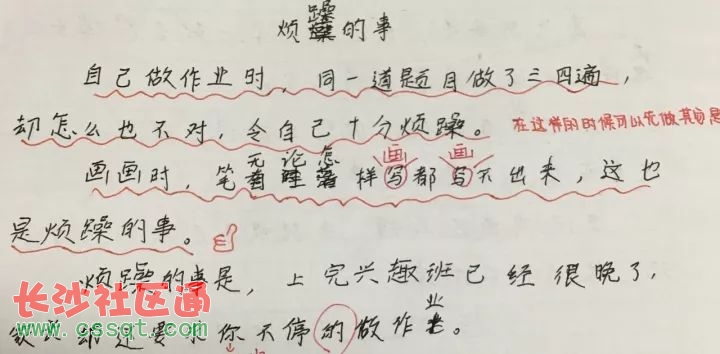 烦躁的事
自己做作业时，同一道题目做了三四遍，
却怎么也不对，令自己十分烦躁。 在这样的时候可以先做其
画 画
画画时，笔无论怎样写都写不出来，这也
是烦躁的事。
烦躁的事是，上完兴趣班已经很晚了，
却还要求你不停的做作业。
长沙社区通
www.cssqt.com